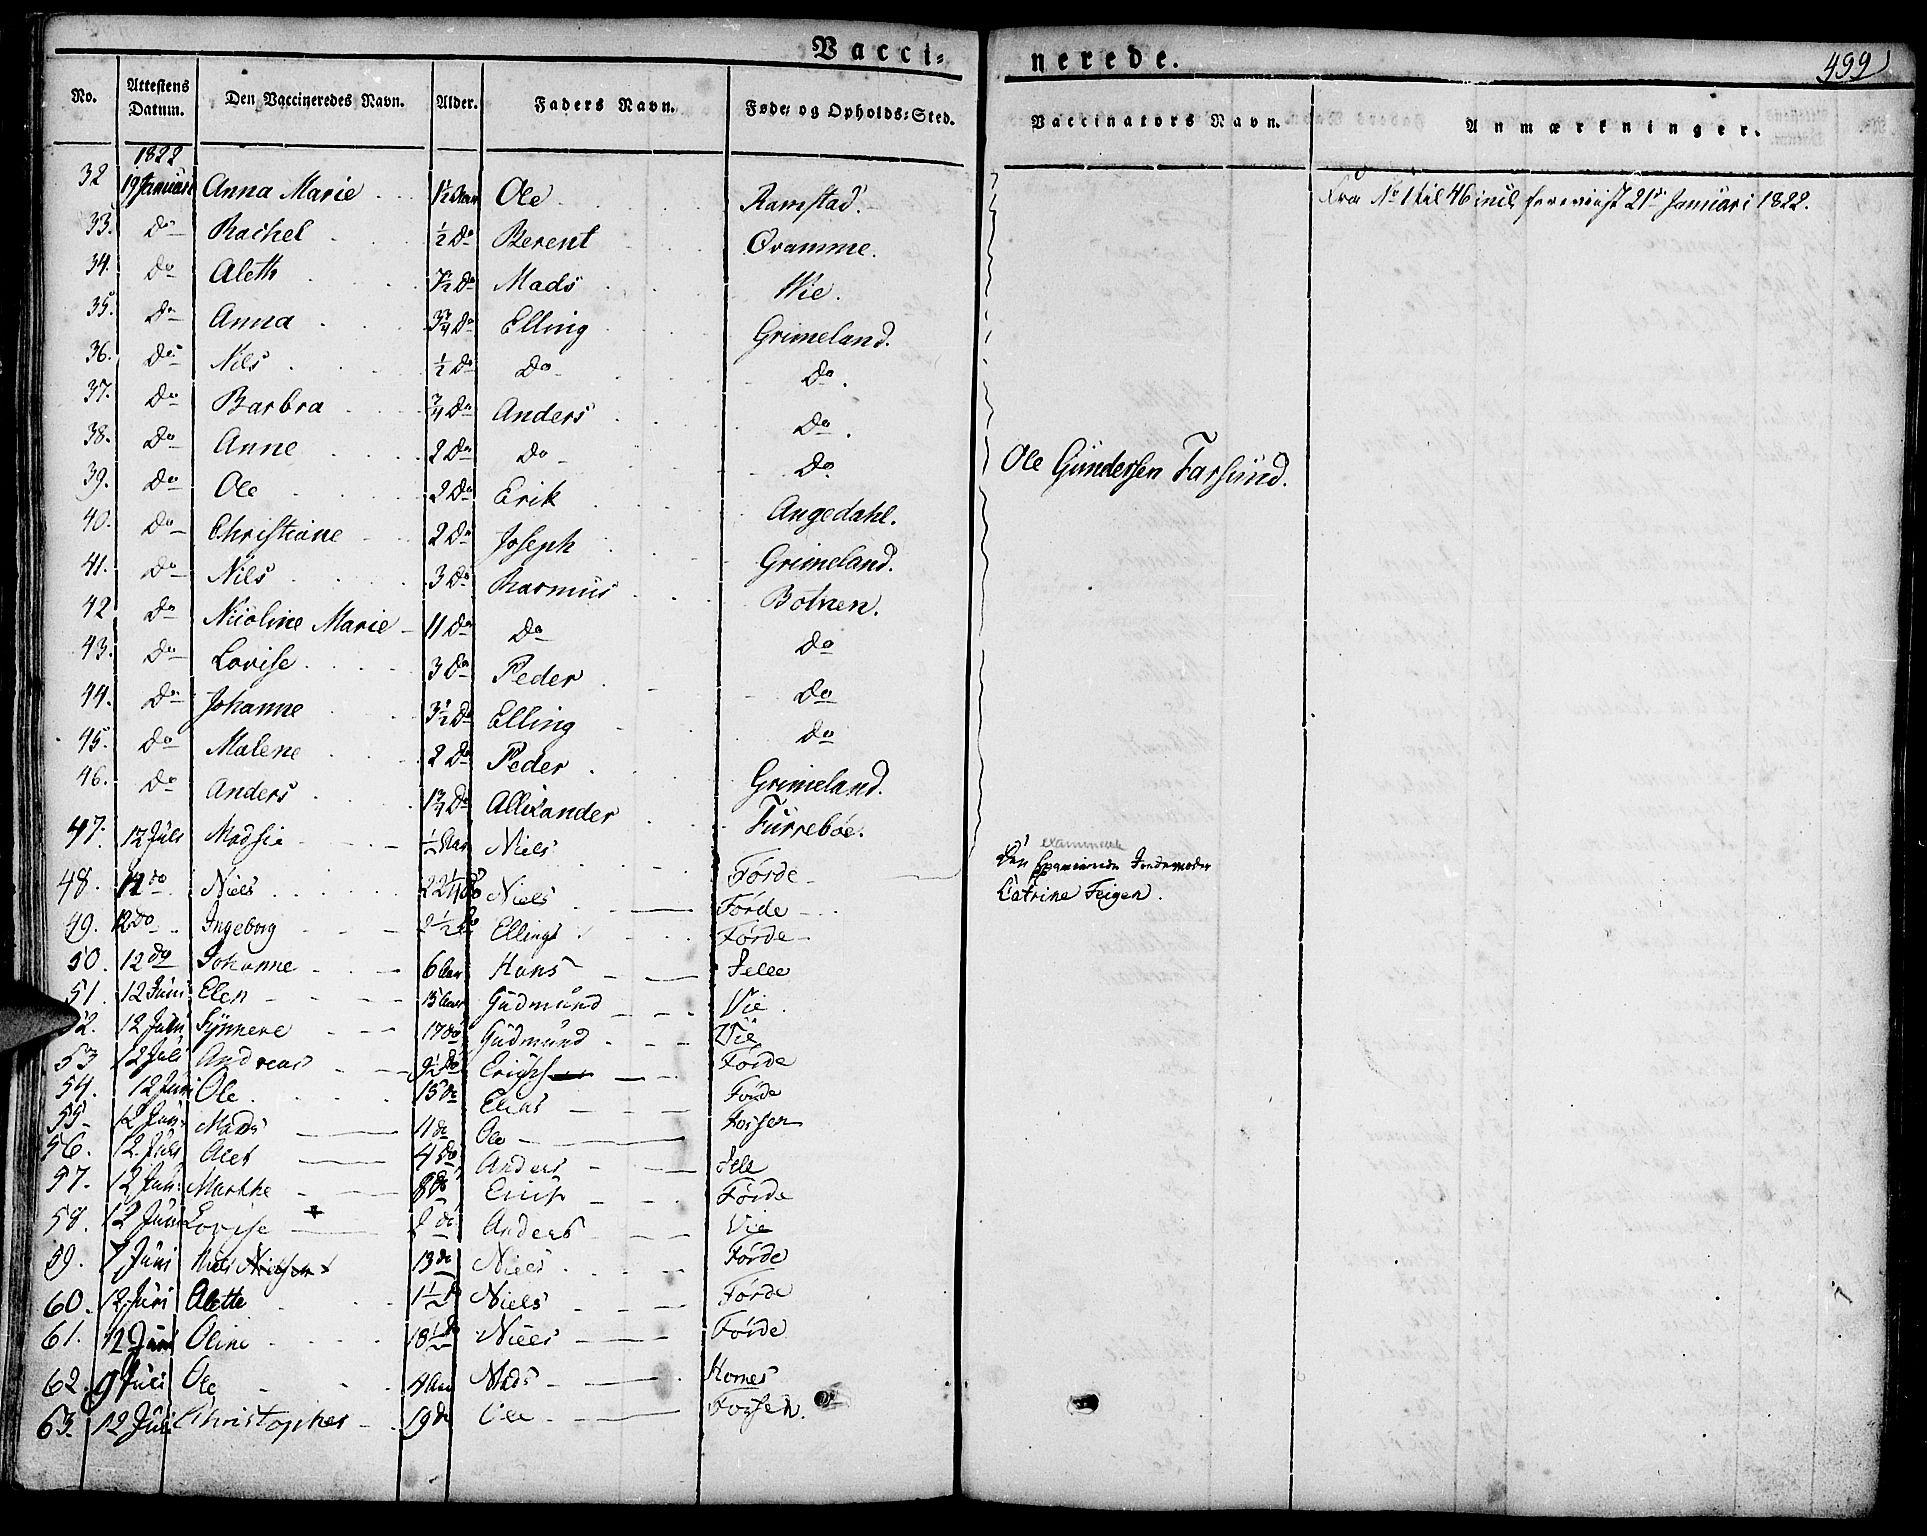 Vacci-nerede.
499
No. Attestens Datum. Den Vaccineredes Navn. Alder. Faders Navn. Føde- og Opholds-Sted. Vaccinators Navn. Anmærkninger.
1822
32 19 Januari Anna Marie 1½ Aar Ole Ramstad. Fra No 1 til 46 incl foreviist 21de Januari 1822.
33. Do Rachel ½ Do Berent Qvamme.
34. Do Aleth 7½ Do Mads Wie.
35. Do Anna 3¾ Do Elling Grimeland.
36. Do Nils ½ Do Do Do.
37. Do Barbra ¾ Do Anders Do.
38. Do Anne 2 Do Do Do
39. Do Ole 2 Do Erik Angedahl. Ole Gundersen Farsund.
40. Do Christiane 2 Do Joseph Grimeland.
41. Do Nils 3 Do Rasmus Botnen.
42 Do Nicoline Marie 11 Do Do Do
43. Do Lovise 3 Do Peder Do
44. Do Johanne 3½ Do Elling Do
45. Do Malene 2 Do Peder Grimeland.
46. Do Anders 1¾ Do Allexander Furrebøe.
47. 12 Juli Madsie ½ Aar Niels Førde Den Examinerede Jordemoder
48. 12 do Niels Niels Førde Catrine Feigen.
49. 12 do Ingeborg 2½ do Ellings Førde
50. 12 do Johanne 6 Aar Hans Selle
51. 12 Juni Elen 15 Aar Gudmund Vie
52. 12 Juni Synneve 17 do Gudmund Vie
53 12 Juli Andreas 9½ do Erich Førde
54. 12 Juni Ole 15 do Elias Førde
55 12 Juni Mads 11 do Ole Forsen
56. 12 Juli Alet 4 do Anders Sele
57. 12 Juni Marthe 8 do Erich Førde
58. 12 Juni Lovise do Anders Vie
59. 7 Juni Niels Nielsen 13 do Niels Førde
60. 12 Juni Alette 1½ do Niels Førde
61. 12 Juni Oline 18½ do Niels Førde
62. 9 Juli Ole 4 Aar Mads Hornes
63. 12 Juli Christopher 19 do Ole Forsen.